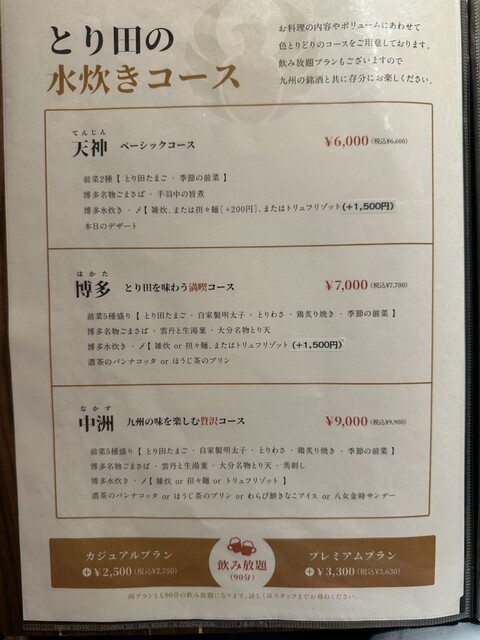 とり田の
水炊きコース
お料理の内容やボリュームにあわせて
色とりどりのコースをご用意しております。
飲み放題プランもございますので
九州の銘酒と共に存分にお楽しみください。
てんじん
天神 ベーシックコース ¥6,000(税込¥6,600)
前菜2種【 とり田たまご ・ 季節の前菜 】
博多名物ごまさば ・ 手羽中の旨煮
博多水炊き ・ 〆【 雑炊、または担々麺[+200円]、またはトリュフリゾット(+1,500円)
本日のデザート
はかた
博多 とり田を味わう満喫コース ¥7,000(税込¥7,700)
前菜5種盛り【 とり田たまご ・ 自家製明太子 ・ とりわさ ・ 鶏炙り焼き ・ 季節の前菜 】
博多名物ごまさば ・ 雲丹と生湯葉 ・ 大分名物とり天
博多水炊き ・ 〆【 雑炊 or 担々麺、またはトリュフリゾット (+1,500円)
濃茶のパンナコッタ or ほうじ茶のプリン
なかす
中洲 九州の味を楽しむ贅沢コース ¥9,000(税込¥9,900)
前菜5種盛り【 とり田たまご ・ 自家製明太子 ・ とりわさ ・ 鶏炙り焼き ・ 季節の前菜 】
博多名物ごまさば ・ 雲丹と生湯葉 ・ 大分名物とり天 ・ 馬刺し
博多水炊き ・ 〆【 雑炊 or 担々麺 or トリュフリゾット 】
濃茶のパンナコッタ or ほうじ茶のプリン or わらび餅きなこアイス or 八女金時サンデー
カジュアルプラン
+¥2,500(税込¥2,750)
飲み放題
(90分)
プレミアムプラン
+¥3,300(税込¥3,630)
両プランとも90分の飲み放題になります。詳しくはスタッフまでお尋ねください。